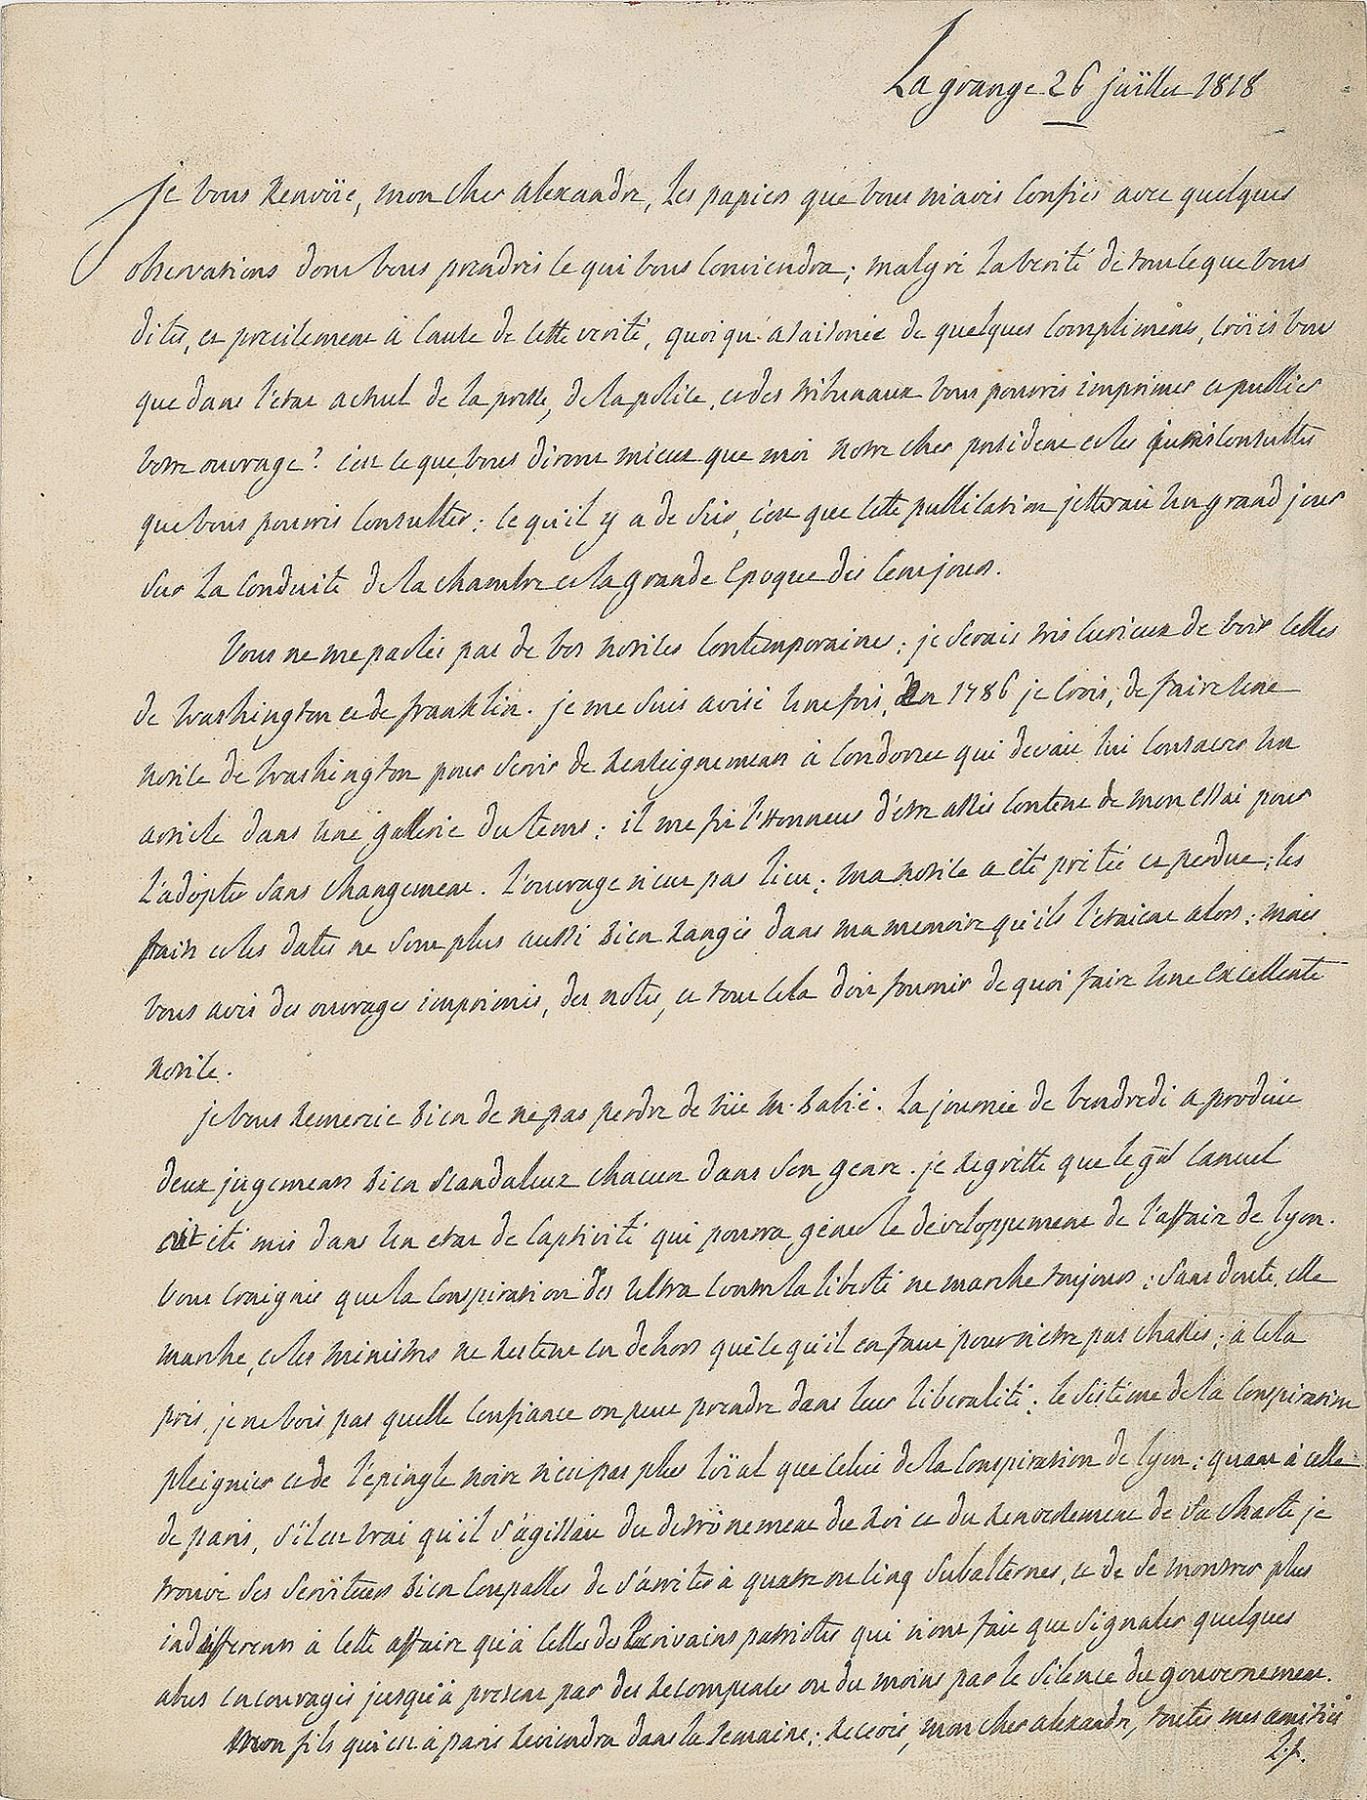 Lagrange 26 juïllet 1818
je vous renvöie, mon cher alexandre, les papiers que vous m'avés confiés avec quelques
observations dont vous prendrés ce qui vous conviendra; malgré la verité de tout ce que vous
dites, et precisement à cause de cette verité, quoiqu'assaisonée de quelques complimens, cröiés vous
que dans l'état actuel de la presse, de la police, et des tribunaux vous pourrés imprimer et publier
votre ouvrage? c'est ce que vous diront mieux que moi notre cher président et les jurisconsultes
que vous pourrés consulter: ce qu'il y a de sûr, c'est que cette publication jetterait un grand jour
sur la conduite de la chambre et la grande Epoque des cent jours.
vous ne me parlés pas de vos notices contemporaines; je serais très curieux de voir celles
de Washington et de franklin. je me suis avisé une fois, en 1786 je crois, de faire une
notice de Washington pour servir de renseignement à Condorcet qui devait lui consacrer un
article dans une gallerie du tems: il me fit l'Honneur d'être assés content de mon essai pour
l'adopter sans changement. l'ouvrage n'eut pas lieu; ma notice a été prêtée et perdue; les
faits et les dates ne sont plus aussi bien rangés dans ma memoire qu'ils l'étaient alors: mais
vous avés des ouvrages imprimés, des notes, et tout cela doit fournir de quoi faire une excellente
notice.
je vous remercie bien de ne pas perdre de vüe M. Babié. la journée de vendredi a produit
deux jugemens bien scandaleux chacun dans son genre. je regrette que le gãl Canuel
ait été mis dans un etat de captivité qui pourra gêner le développement de l'affaire de lyon.
vous craignés que la conspiration des ultra contre la liberté ne marche toujours; sans doute, elle
marche, et les ministres ne restent en dehors que ce qu'il en faut pour n'être pas chassés; à cela
près, je ne vois pas quelle confiance on peut prendre dans leur liberalité; le sistême de la conspiration
pleignier et de l'épingle noire n'est pas plus löial que celui de la conspiration de lyon; quant à celle
de paris, s'il est vrai qu'il s'agissait du detrônement du Roi et du renversement de sa charte je
trouve ses serviteurs bien coupables de s'arrêter à quatre ou cinq subalternes, et de se montrer plus
indifferents à cette affaire qu'à celles des Ecrivains patriotes qui n'ont fait que signaler quelques
abus encouragés jusqu'à present par des recompenses ou du moins par le silence du gouvernement.
mon fils qui est à paris reviendra dans la semaine; recevés, mon cher alexandre, toutes mes amitiés
L.f.